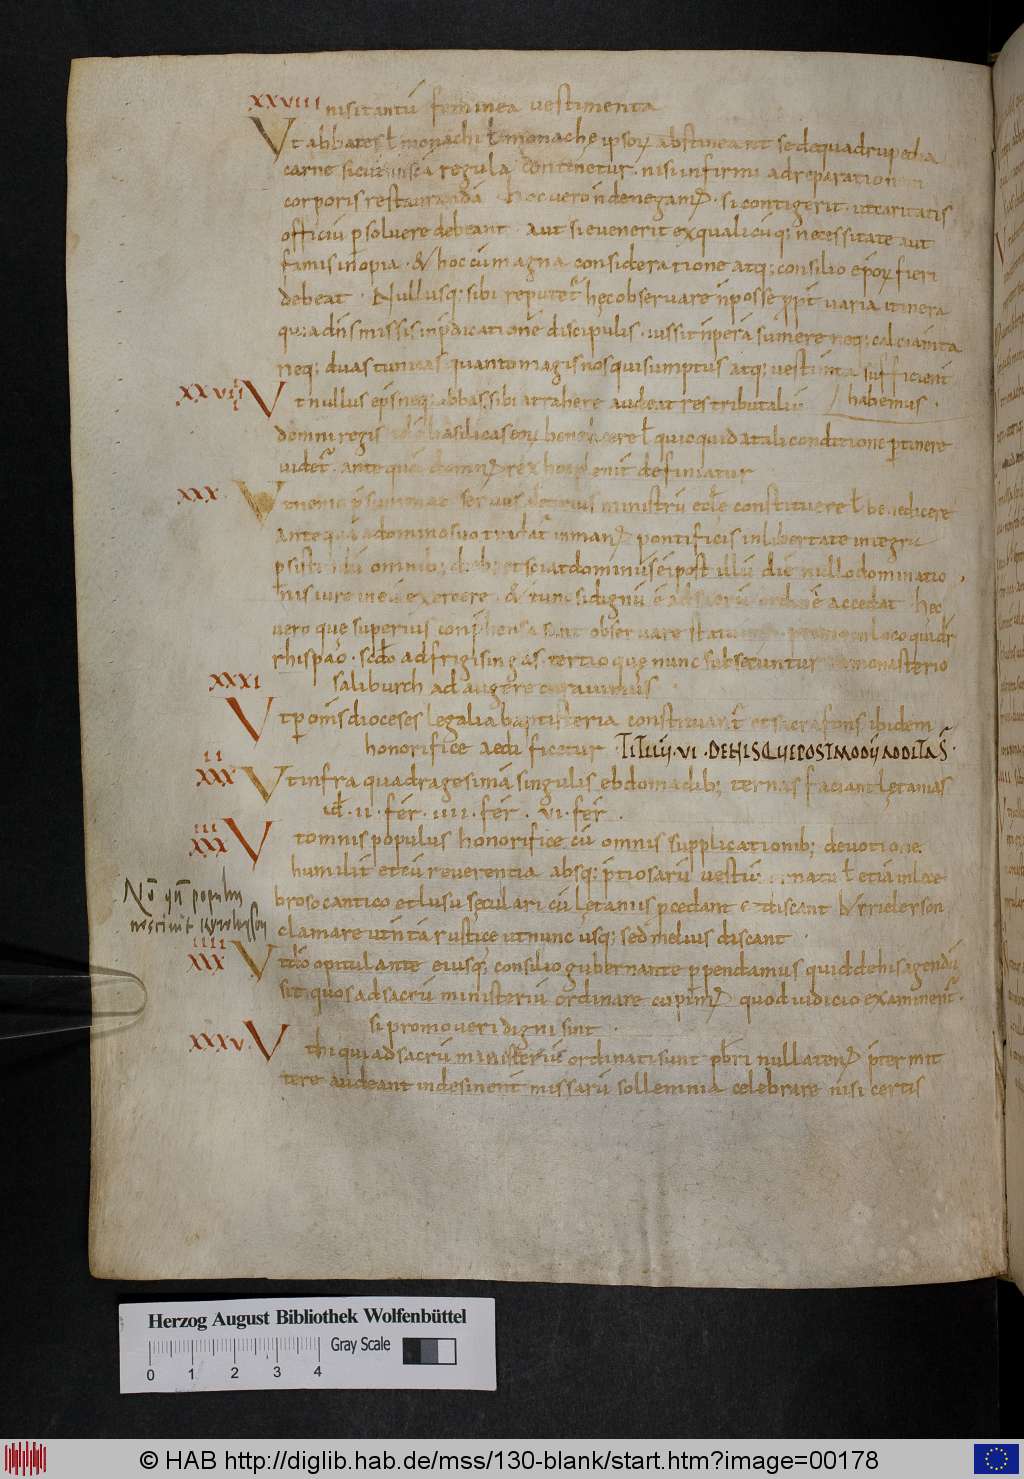 XXVIII nisi tantū feminea vestimenta
Ut abbates ł monachi ł monache ipsoꝝ abstineant se de quadrupedia
carne sicut in sca regula continetur · nisi infirmi ad reparationem
corporis restaurandā hoc vero n̄ denegam᷒ · si contigerit · ut caritatis
officiū ꝑsolvere debeant · Aut si evenerit ex quali cūq; necessitate aut
famis inopia · & hoc cū magna consideratione atq; consilio ep̄oꝝ fieri
debeat · Nullusq; sibi reputet hęc observare n̄ posse ꝓpt varia itinera
missis in p̄dicationē discipulis · iussit sumere neq; calciam̄ta
neq; duas tunicas quanto magis nos qui sumptus atq; vestim̄ta sufficient
XXVIIII Ut nullus ep̄s neq; abbas sibi atrahere audeat res tributaliū habemus ·
domni regis ł quicquid a tali conditione ꝑtinere
videt · ante quā domn᷒ rex definiatur
XXX Ut nemo p̄sumat servus ministrū eccłe constituere ł benedicere
Ante quā a domino suo tradat in man᷒ pontificis in libertate integra
omnib; dieb; et sciat dominus ei post illū diē nullo dominatio
nis iure in eū exercere · & tunc si dignū ē ad sacrū ordinē accedat hęc
vero quę superius conp̄hensa sunt observare
rhispac · scđo ad frigisingas · tertio quę nunc subsecuntur in monasterio
XXXI saliburch ad augere curavimus ·
Ut ꝑ om̄s dioceses legalia baptisteria constituant et sacra fons ibidem
honorifice aedificetur · TITULI · VI · DE HIS QUE POSTMODŪ ADDITA S̄ ·
XXXII Ut infra quadragesimā singulis ebdomadib; ternas faciant lętanias
id̄ · II · fer̄ · IIII · fer̄ · VI · fer̄ ·
XXXIII Ut omnis populus honorifice cū omnis supplicationib; devotione
humilit̄ et cū reverentia absq; p̄tiosarū vestiū ornatu ł etiā inlece
broso cantico et lusu sęculari cū lętaniis ꝓcedant & discant kyrieleison
Not̄ qđ populus
nescivit kyrieleyson
clamare ut n̄ tā rustice ut nunc usq; sed melius discant ·
XXXIIII Ut dō opitulante eiusq; consilio gubernante ꝑpendamus quid de his agendū
sit quos ad sacrū ministeriū ordinare cupim᷒ quod iudicio examinent ·
si promoveri digni sint ·
XXXV Ut hi qui ad sacrū ministeriū ordinati sunt pb̄ri nullaten᷒ p̄termit
tere audeant indesinent̄ missarū sollemnia celebrare nisi certis
Herzog August Bibliothek Wolfenbüttel
Gray Scale
0 1 2 3 4
© HAB http://diglib.hab.de/mss/130-blank/start.htm?image=00178